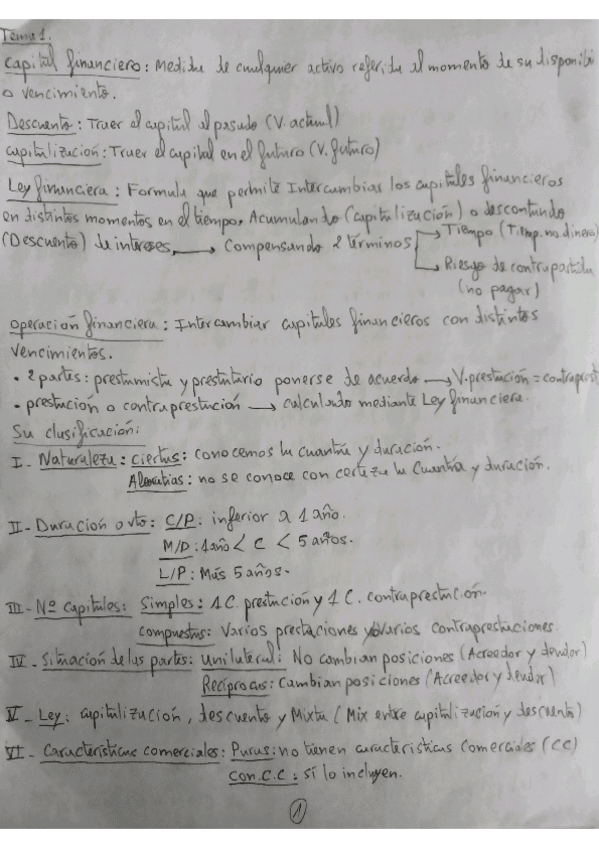 Tema 1.
Capital financiero: Medida de cualquier activo referida al momento de su disponibi
o vencimiento.
Descuento: Traer el capital al pasado (V. actual)
Capitalización: Traer el capital en el futuro (V. futuro)
Ley financiera: Formula que permite Intercambiar los capitales financieros
en distintos momentos en el tiempo, Acumulando (Capitalización) o descontando
(Descuento) de intereses, → Compensando 2 términos → Tiempo (Tiemp. no dinero)
→ Riesgo de contrapartida
(no pagar)
Operación financiera: Intercambiar capitales financieros con distintos
vencimientos.
• 2 partes: prestamista y prestatario ponerse de acuerdo → V. prestación = contraprest
• prestación o contraprestación → calculando mediante Ley financiera.
Su clasificación:
I - Naturaleza: Ciertas: conocemos la cuantía y duración.
Aleoatias: no se conoce con certeza la Cuantía y duración.
II - Duración o vto: C/P: inferior a 1 año.
M/D: 1 año < C < 5 años.
L/P: Más 5 años.
III - Nº Capitales: Simples: 1 C. prestación y 1 C. contraprestación.
Compuestas: Varios prestaciones y/o varios contraprestaciones.
IV - Situación de las partes: Unilateral: No cambian posiciones (Acreedor y deudor)
Recíprocas: Cambian posiciones (Acreedor y deudor)
V - Ley: capitalización, descuento y Mixta (Mix entre capitalización y descuento)
VI - Características comerciales: Puras: no tienen características Comerciales (CC)
Con C.C: sí lo incluyen.
1